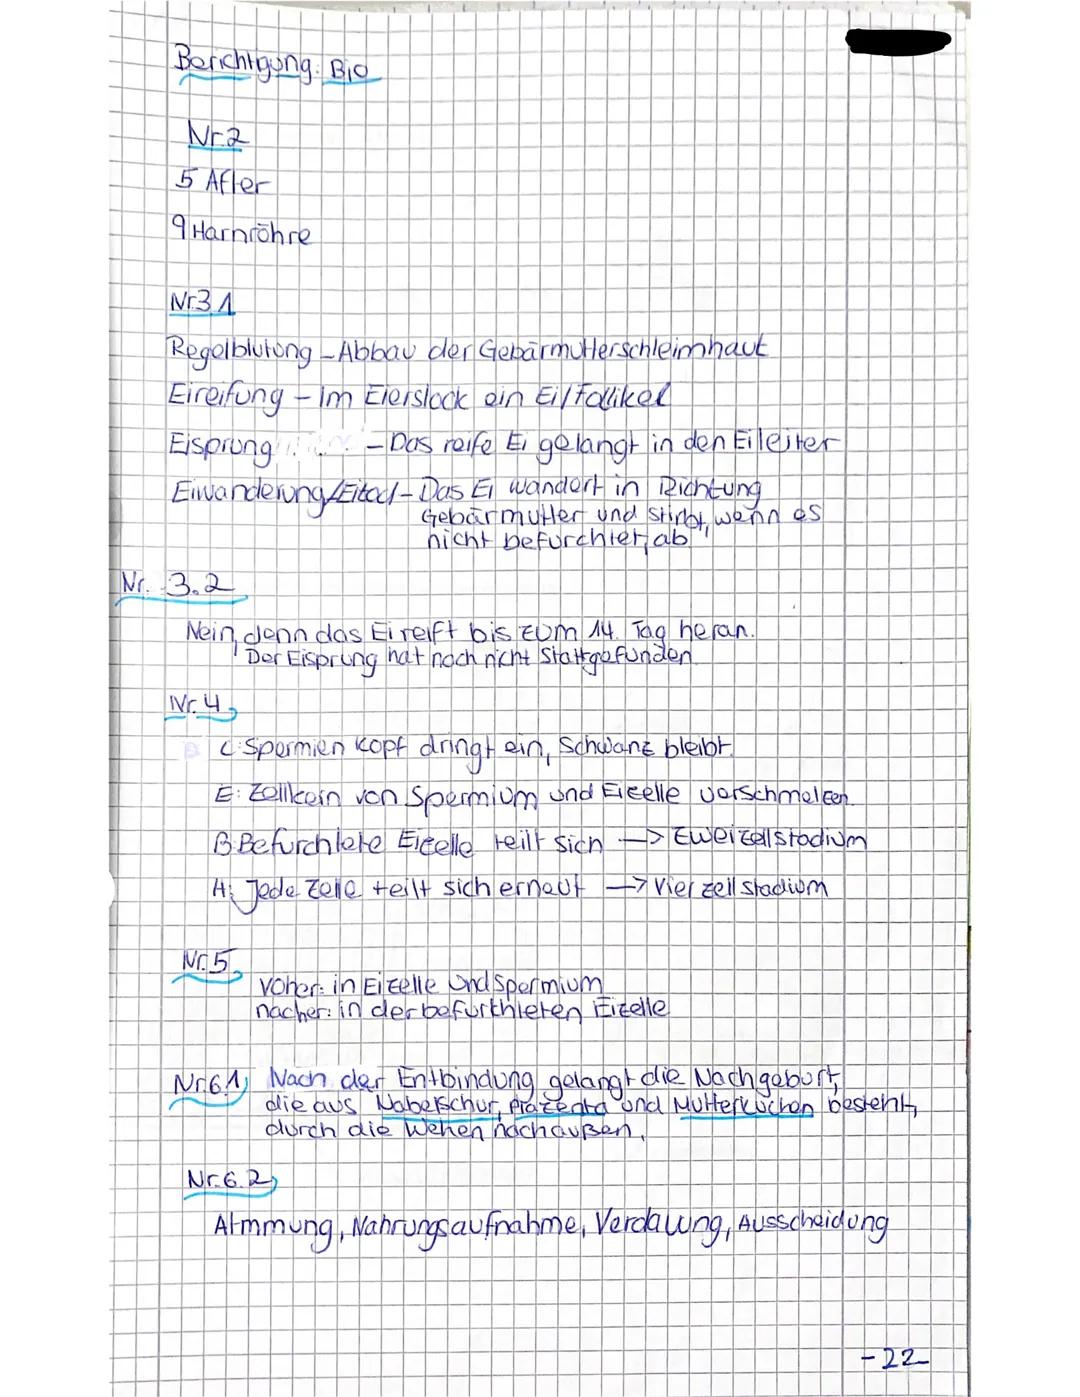 Berichtigung: Bio
Nr.2
5 After
9 Harnröhre
Nr 3.1
Regelblutung - Abbau der Gebärmutterschleimhaut
Eireifung - Im Eierstock ein Ei/Follikel
Eisprung - Das reife Ei gelangt in den Eileiter
Eiwanderung/Eitod - Das Ei wandert in Richtung
Gebärmutter und stirbt, wenn es
nicht befurchtet, ab
Nr. 3.2
Nein, denn das Ei reift bis zum 14. Tag heran.
Der Eisprung hat noch nicht stattgefunden
Nr. 4
C: Spermien Kopf dringt ein, Schwanz bleibt.
E: Zellkern von Spermium und Eizelle verschmelzen.
B: Befurchtete Eizelle teilt sich -> Zweizellstadium
A: Jede Zelle teilt sich erneut -> Vierzellstadium
Nr. 5
voher: in Eizelle und Spermium
nacher: in der befurthteten Eizelle
Nr.6.1 Nach der Entbindung gelangt die Nachgeburt,
die aus Nabelschur, Plazenta und Mutterkuchen besteht,
durch die Wehen nach außen.
Nr.6.2
Atmmung, Nahrungsaufnahme, Verdauung, Ausscheidung
-22